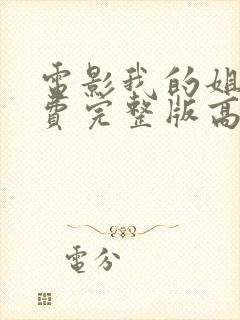 電影我的姐
費完整版高
電分